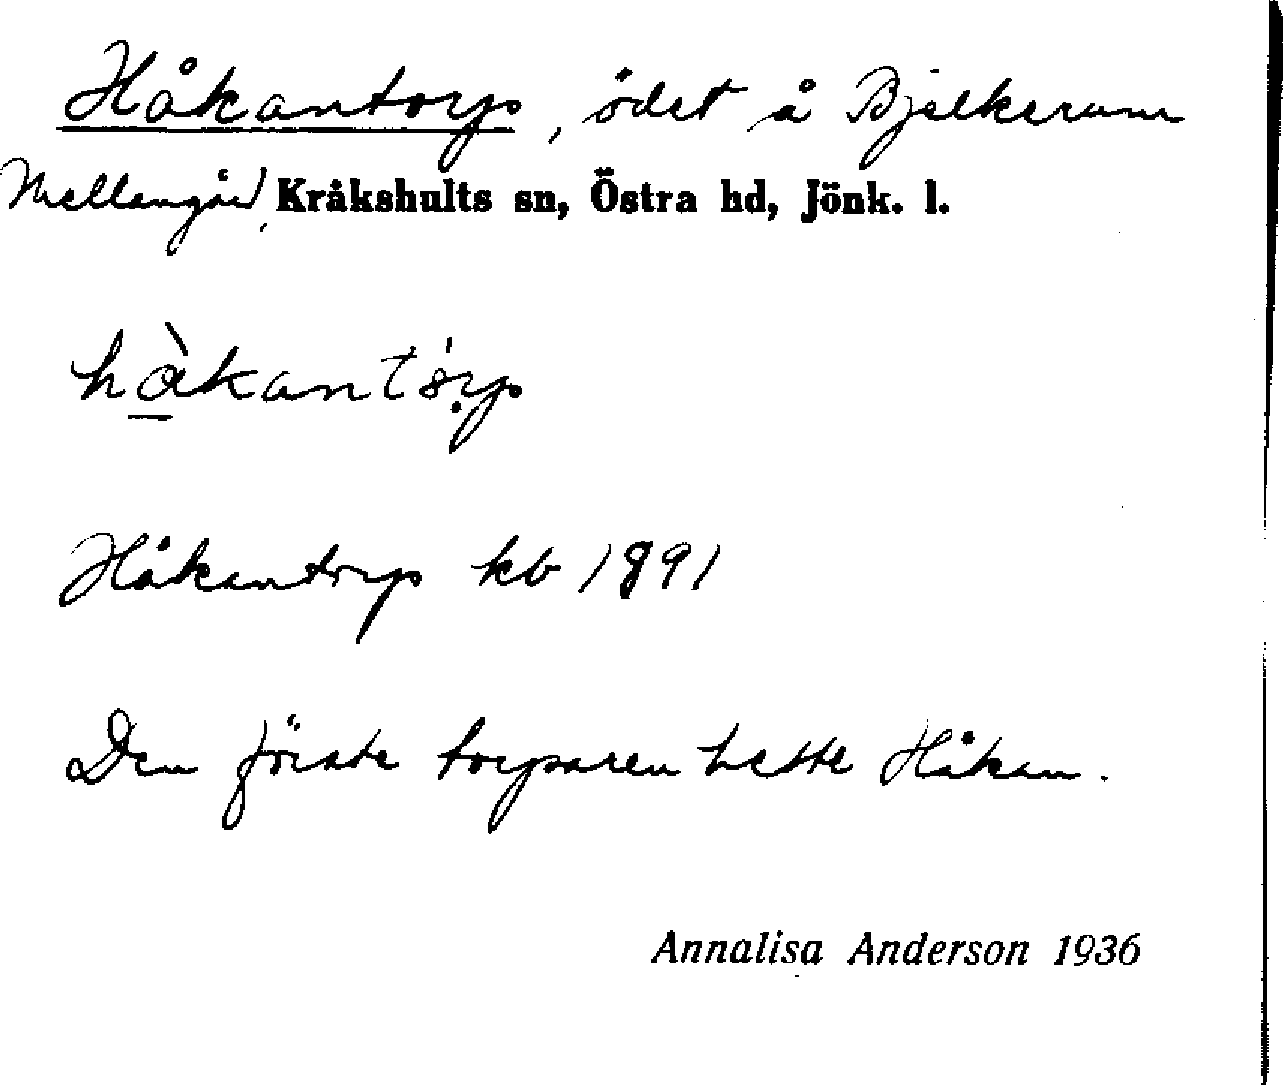 Håkantorp, ödet å Bjelkerum
Mellangård, Kråkshults sn, Östra hd, Jönk. l.
håkantorp
Håkantorp kb 1891
Den förste torparen hette Håkan.
Annalisa Anderson 1936